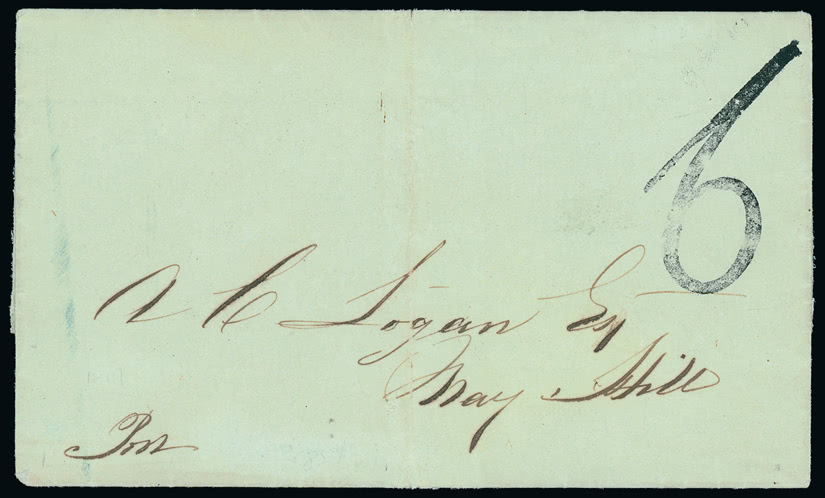 6
A C Logan Esq
May Hill
Post